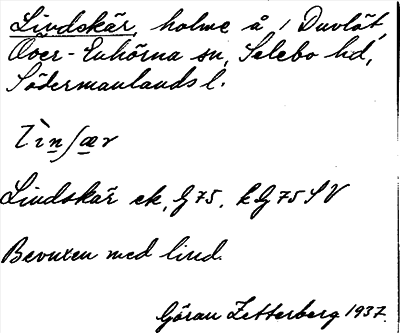 Lindskär, holme å / Duvlöt,
Över-Enhörna sn, Selebo hd,
Södermanlands l.
Lìnʃær
Lindskär ek, G75, kG75SV
Bevuxen med lind.
Göran Zetterberg 1937.